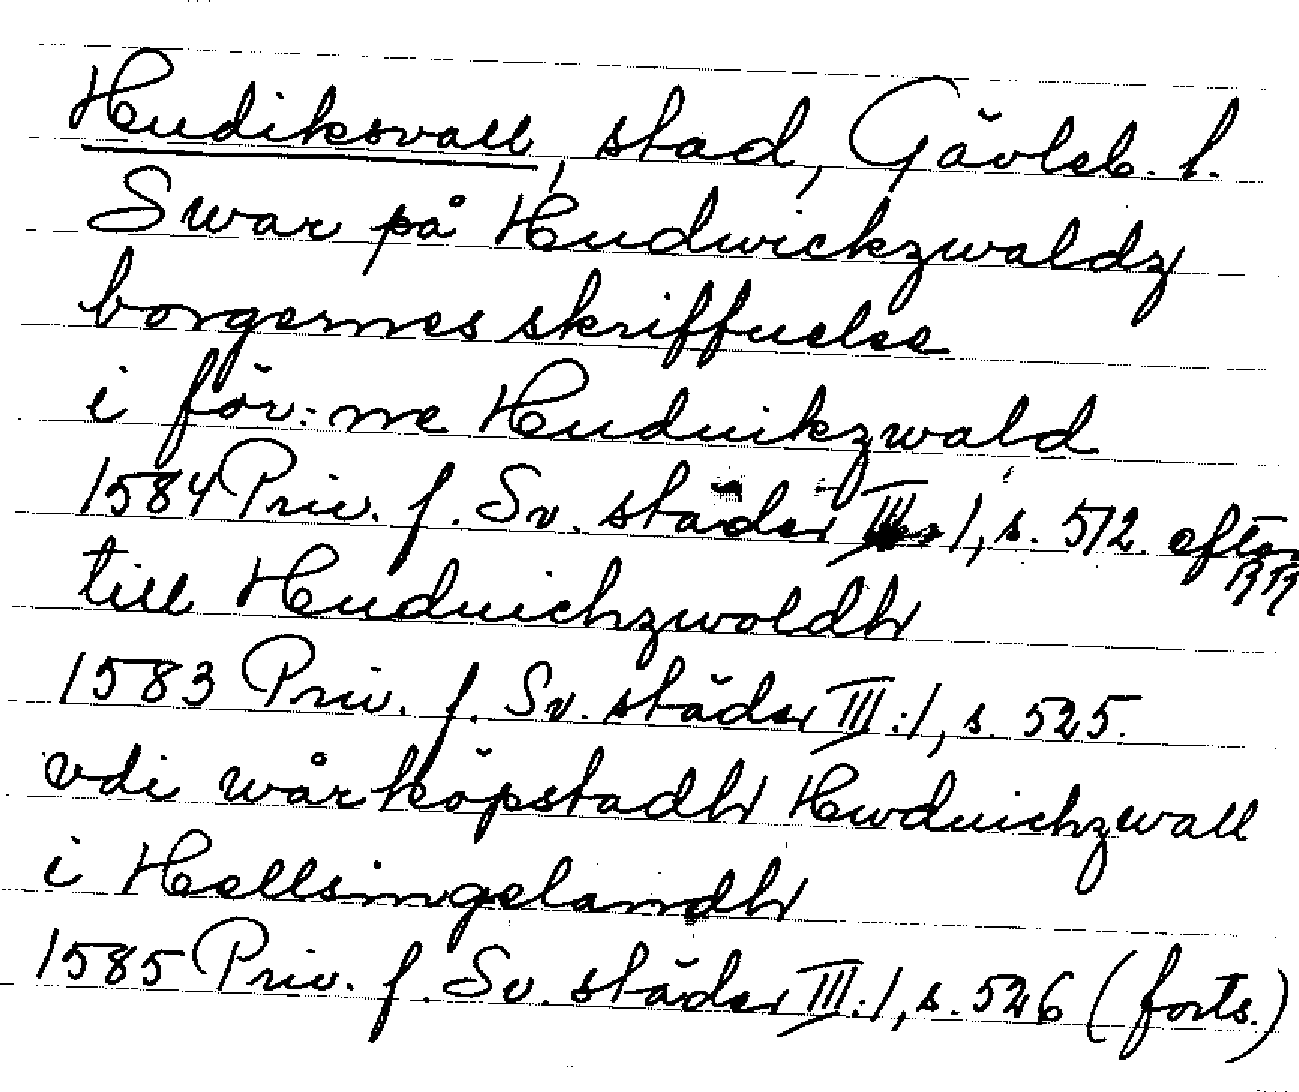 Hudiksvall, stad, Gävleb. l.
Swar på Hudwickzwaldz
borgernes skriffuelse
i för:ne Huduikzwald
1584 Priv. f. Sv. städer III:1, s. 512 efter RR
till Huduichzwoldh
1583 Priv. f. Sv. städer III:1, s. 525.
vdi wår köpstadh Hwduichzwall
i Hellsingelandh
1585 Priv. f. Sv. städer III:1, s. 526 (forts.)